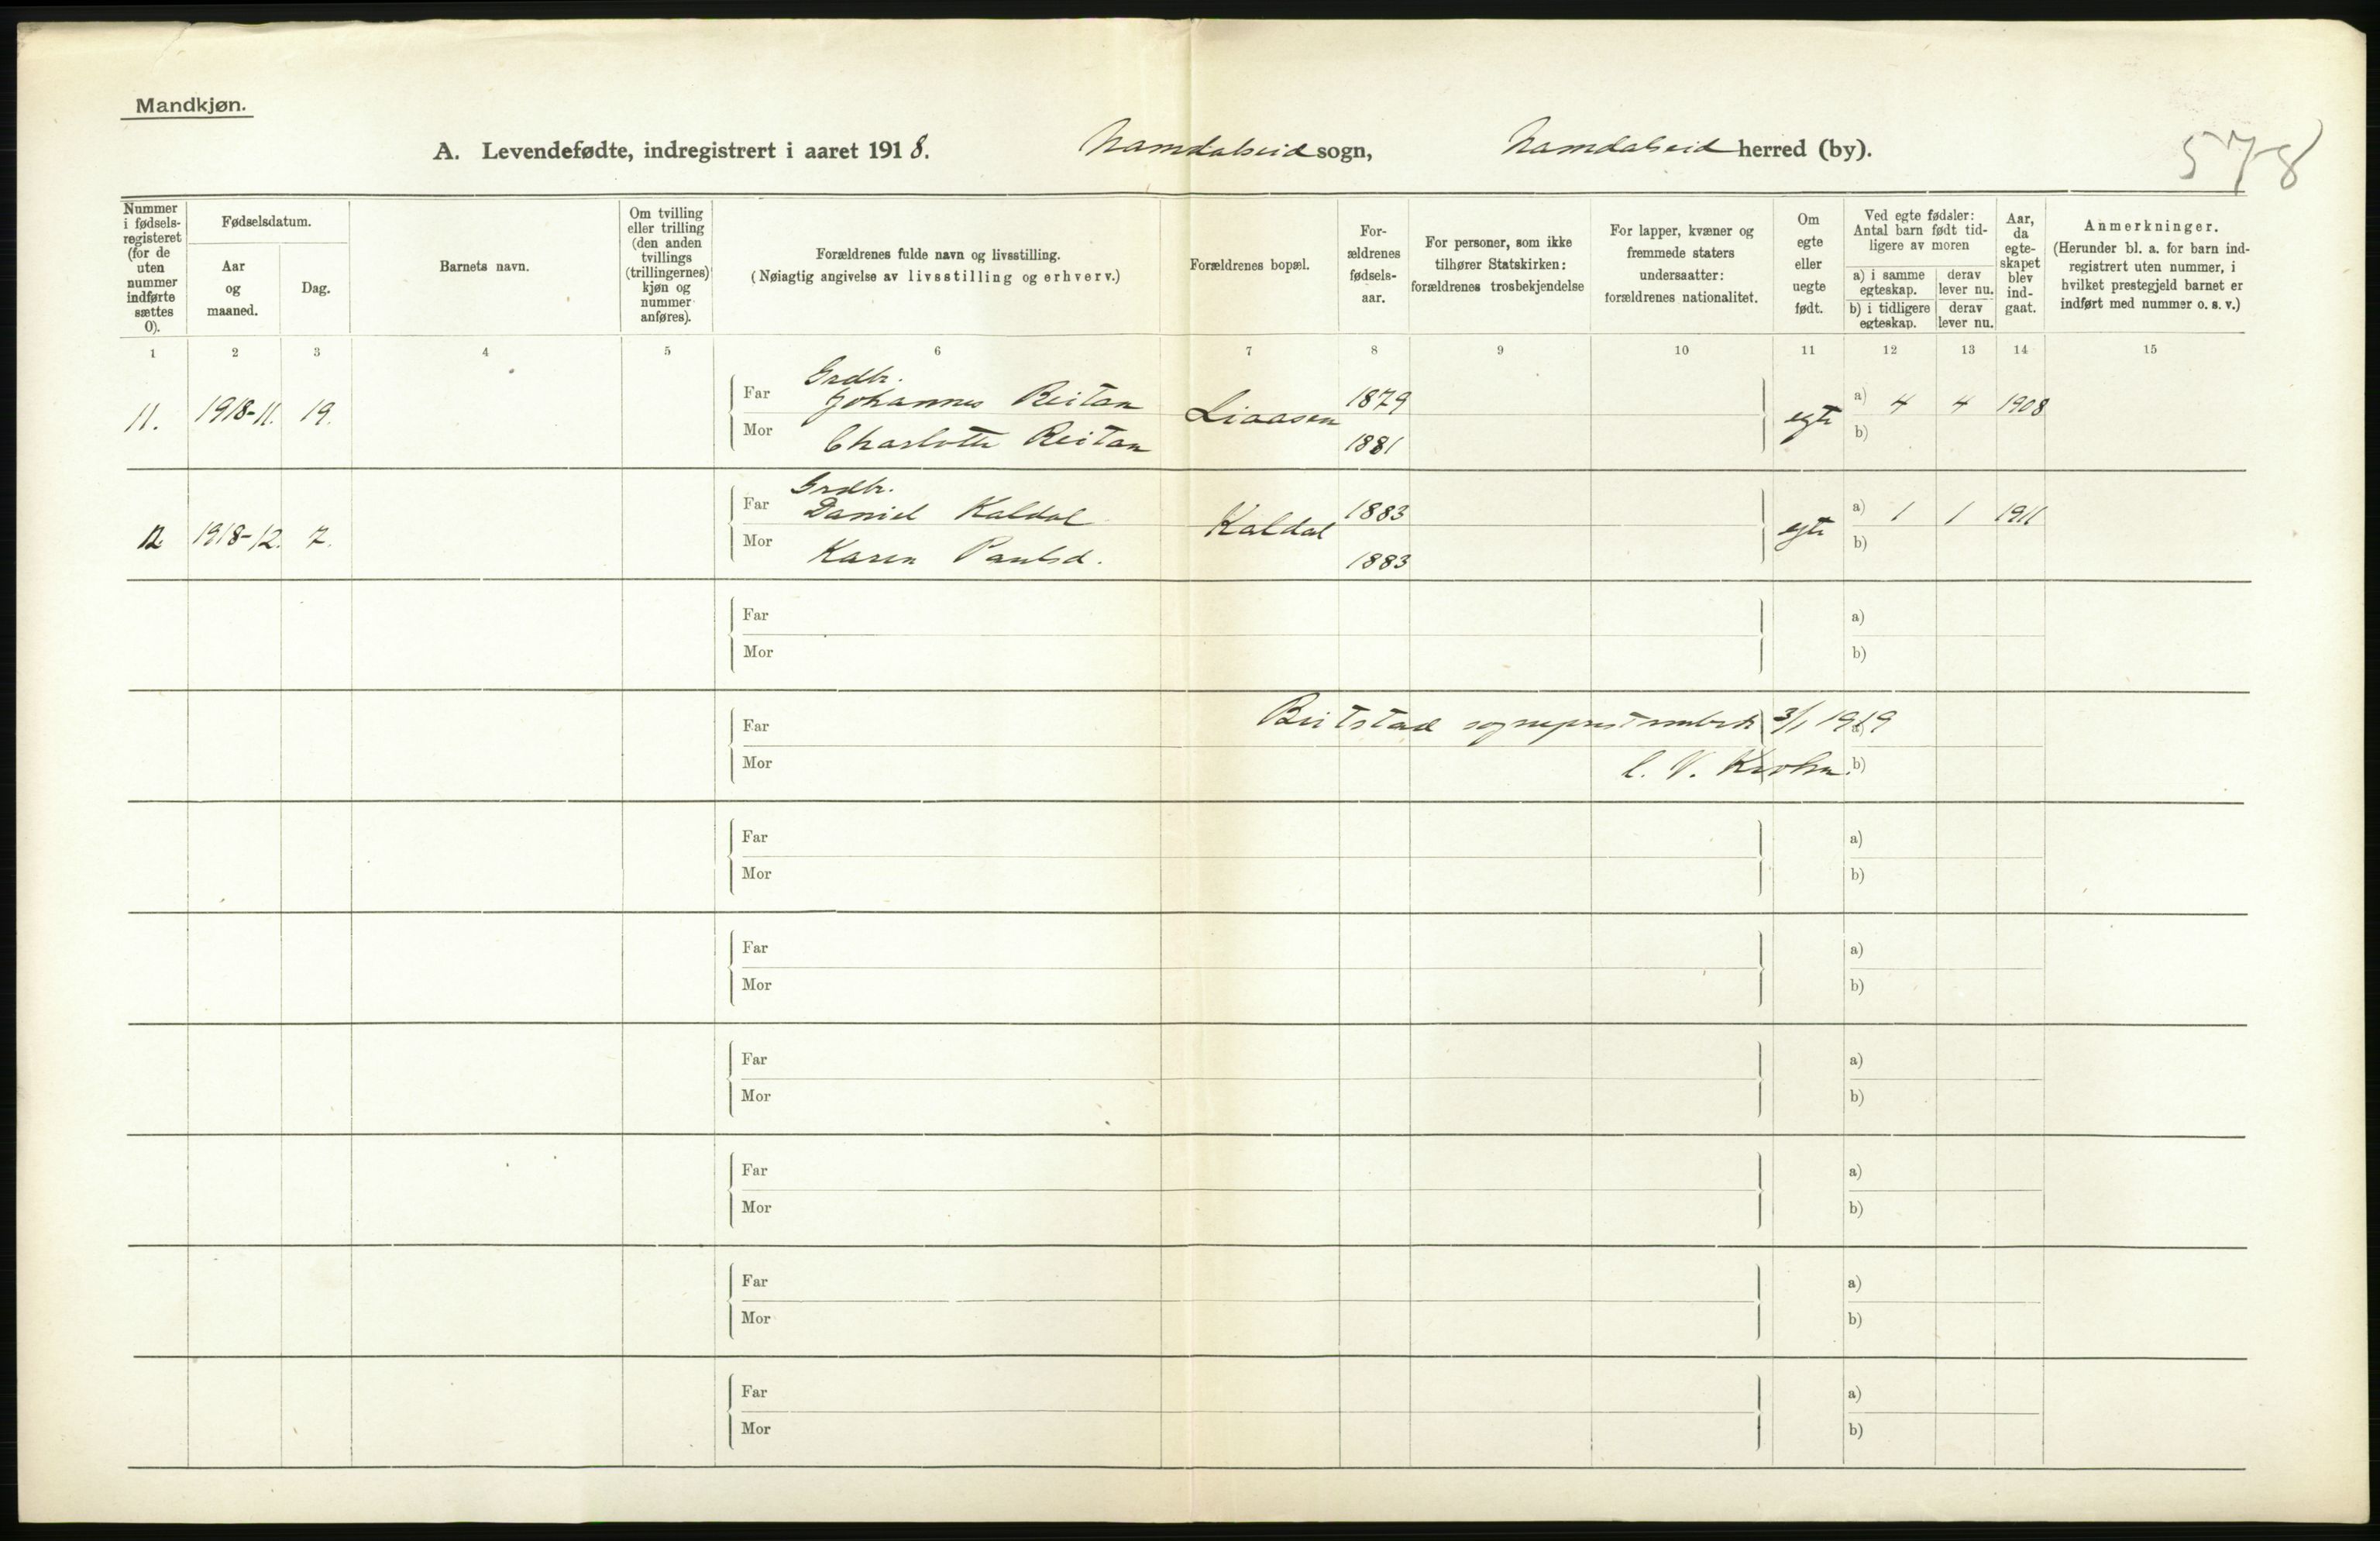 Mandkjøn.
A. Levendefødte, indregistrert i aaret 1918. Namdalseid sogn, Namdalseid herred (by).
578
Nummer i fødsels-registeret (for de uten nummer indførte sættes 0).
Fødselsdatum.
Aar og maaned.
Dag.
Barnets navn.
Om tvilling eller trilling (den anden tvillings (trillingernes) kjøn og nummer anføres).
Forældrenes fulde navn og livsstilling.
(Nøiagtig angivelse av livsstilling og erhverv.)
Forældrenes bopæl.
For-ældrenes fødsels-aar.
For personer, som ikke tilhører Statskirken: forældrenes trosbekjendelse
For lapper, kvæner og fremmede staters undersaatter: forældrenes nationalitet.
Om egte eller uegte født.
Ved egte fødsler: Antal barn født tid-ligere av moren
a) i samme egteskap.
derav lever nu.
b) i tidligere egteskap.
derav lever nu.
Aar, da egte-skapet blev ind-gaat.
Anmerkninger.
(Herunder bl. a. for barn ind-registrert uten nummer, i hvilket prestegjeld barnet er indført med nummer o. s. v.)
1 2 3 4 5 6 7 8 9 10 11 12 13 14 15
Grdbr.
11. 1918-11. 19. Far Johannes Reitan Liaasen 1879 egte a) 4 4 1908
Mor Charlotte Reitan 1881 b)
Grdbr.
12. 1918-12. 7. Far Daniel Kaldal Kaldal 1883 egte a) 1 1 1911
Mor Karen Paulsd. 1883 b)
Far a)
Mor b)
Far Beitstad sogneprestembede 3/1 1919 a)
Mor C. V. Krohn. b)
Far a)
Mor b)
Far a)
Mor b)
Far a)
Mor b)
Far a)
Mor b)
Far a)
Mor b)
Far a)
Mor b)